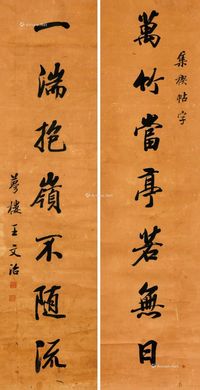 集禊帖字
萬竹當亭若無日
一湍抱嶺不隨流
夢樓王文治